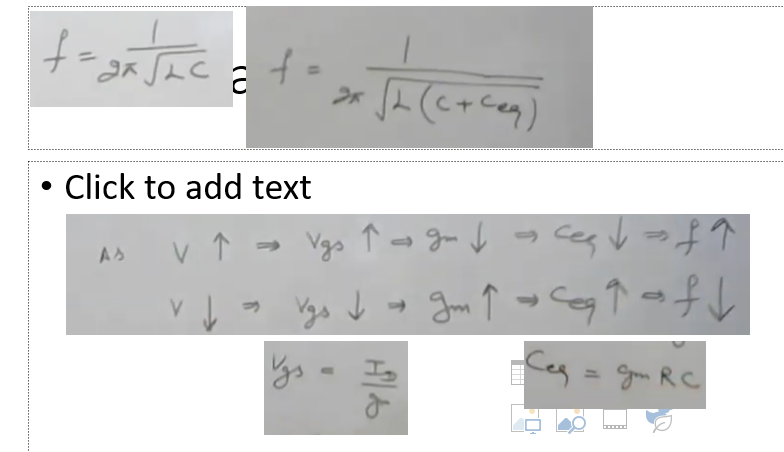 f = 1 / 2π√LC
f = 1 / 2π√L(C + Ceq)
• Click to add text
As V ↑ ⇒ Vgs ↑ ⇒ gm ↓ ⇒ Ceq ↓ ⇒ f ↑
V ↓ ⇒ Vgs ↓ ⇒ gm ↑ ⇒ Ceq ↑ ⇒ f ↓
Vgs = ID / g
Ceq = gm RC